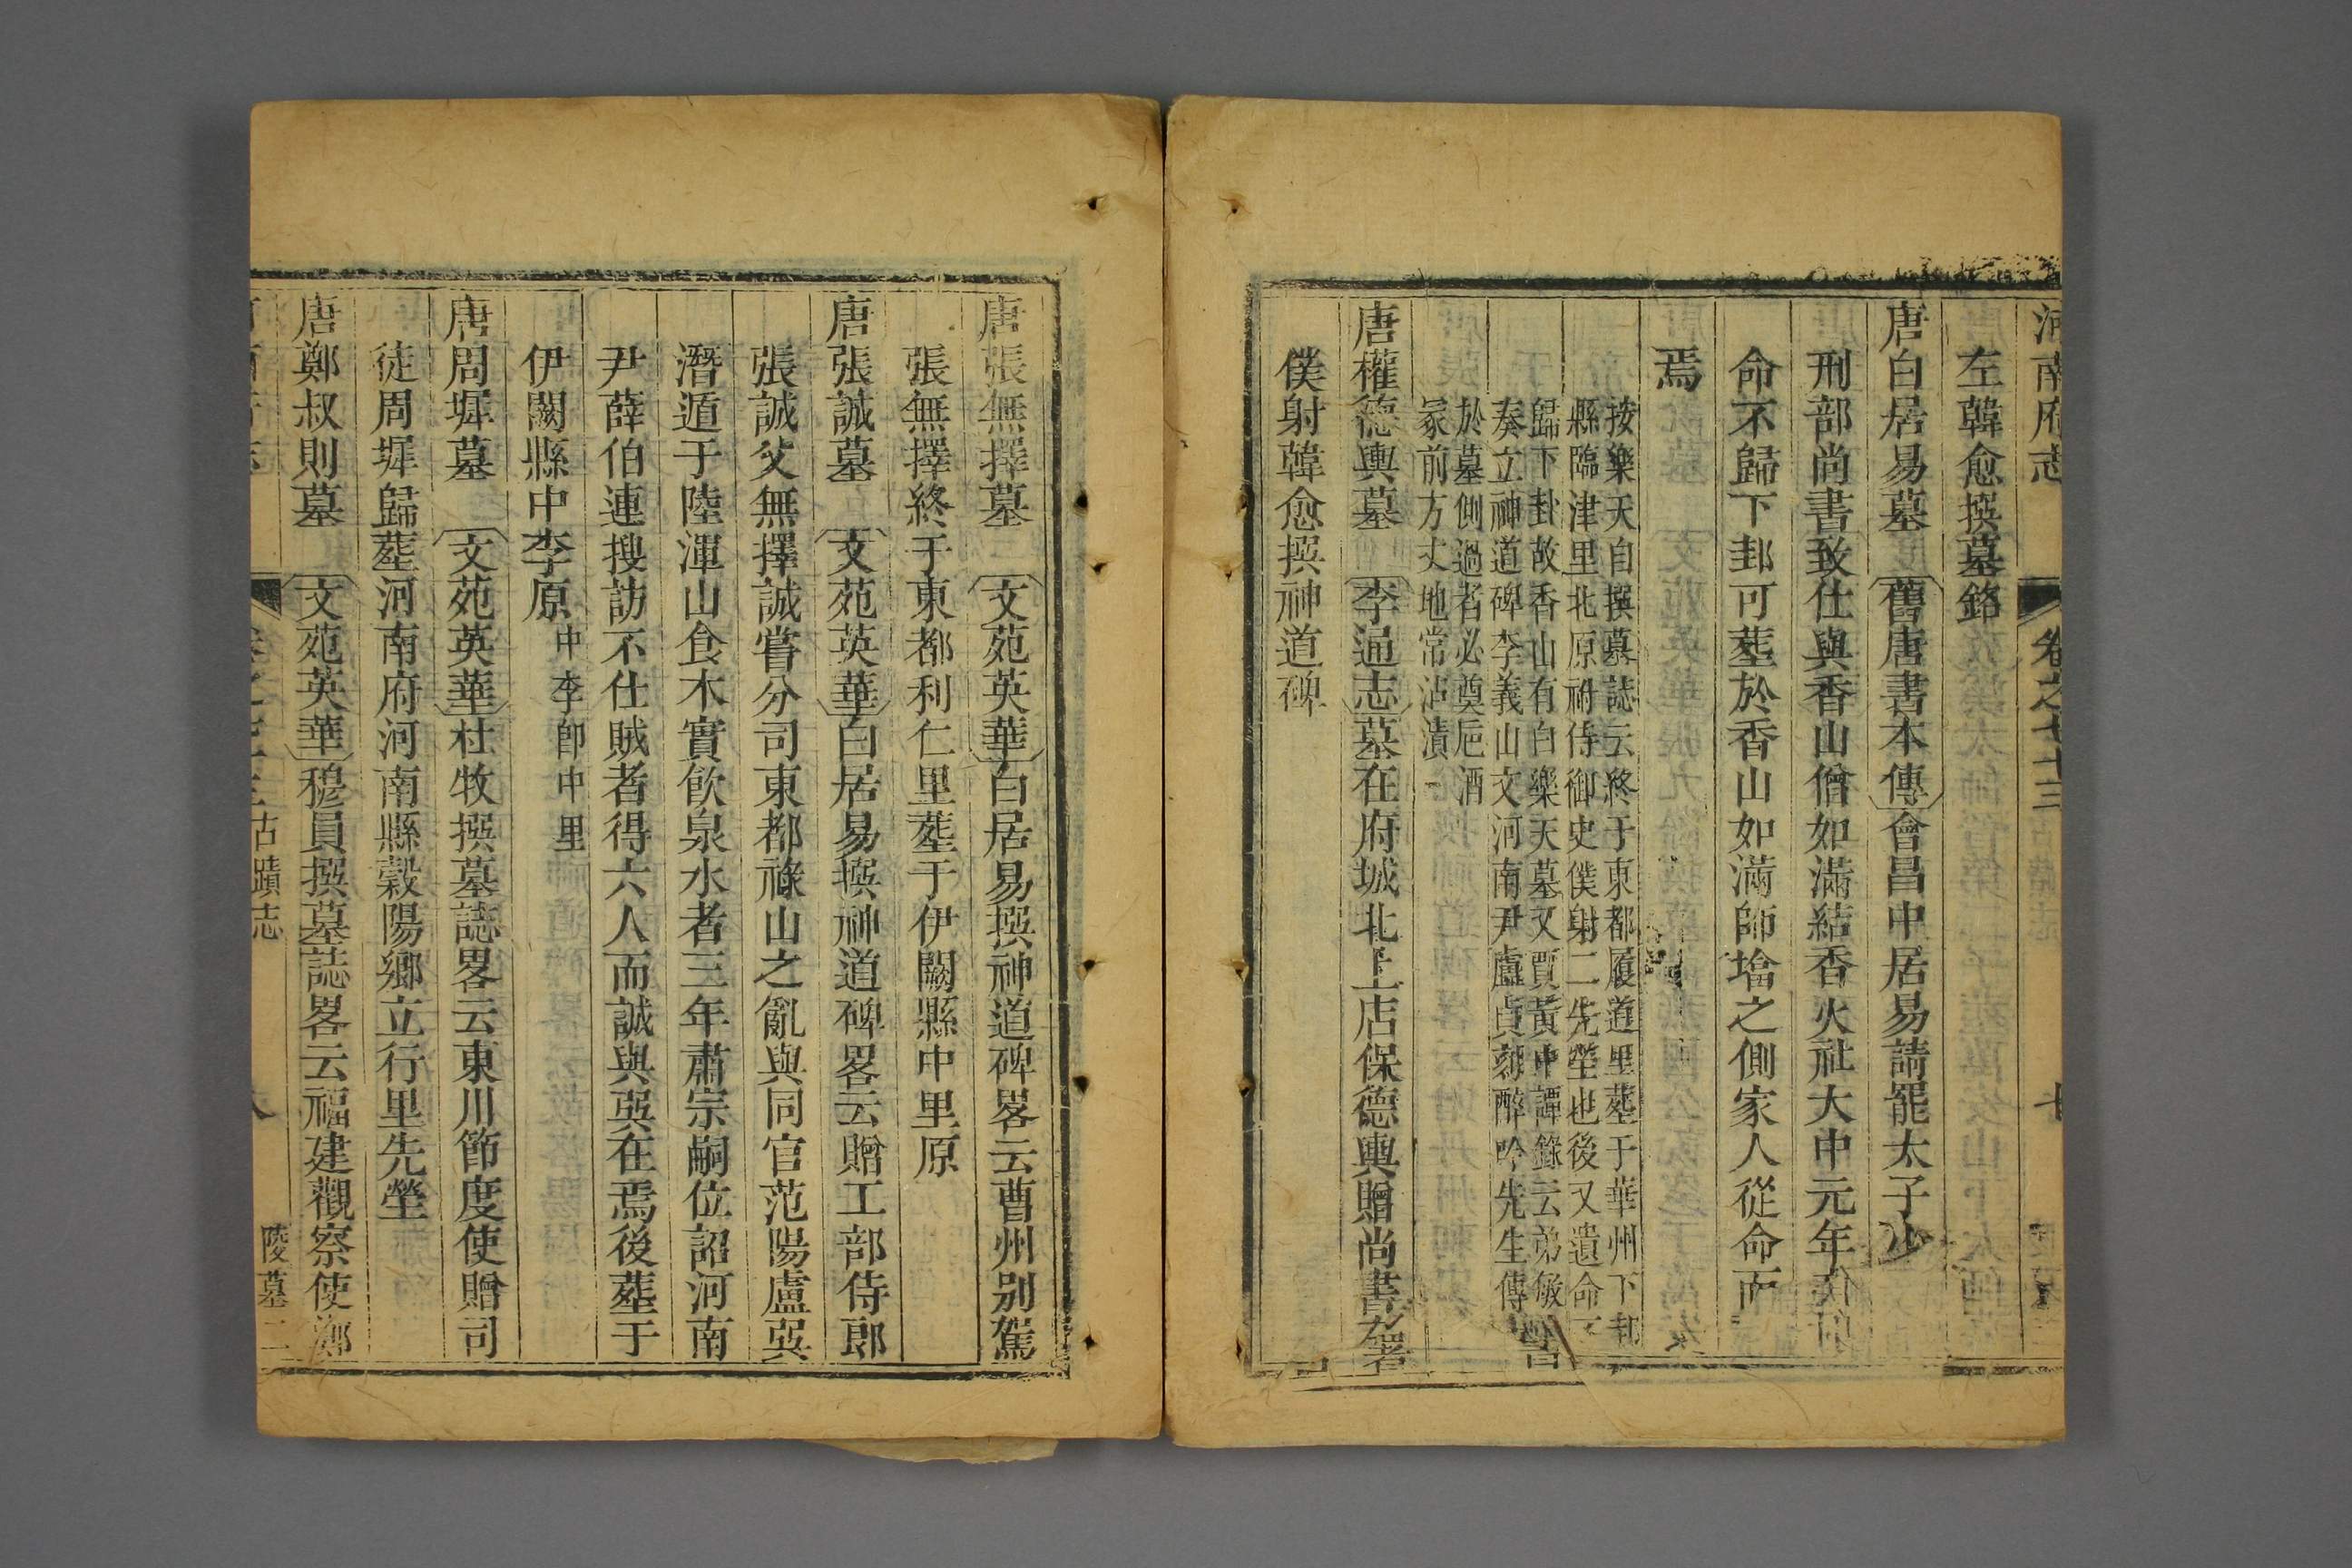 河南府志 卷之七十三 七
左韓愈撰墓銘
唐白居易墓 舊唐書本傳會昌中居易請罷太子少
刑部尚書致仕與香山僧如滿結香火社大中元年
命不歸下邽可塟於香山如滿師塔之側家人從命而
焉
按樂天自撰墓誌云終于東都履道里塟于華州下邽
縣臨津里北原祔侍御史僕射二先塋也後又遺命
歸下卦故香山有白樂天墓又賈黃中譚錄云弟敏
奏立神道碑李義山文河南尹盧貞刻醉吟先生傳
於墓側過者必奠巵酒
冢前方丈地常沾漬
唐權德輿墓 李通志墓在府城北上店保德輿贈尚書左
僕射韓愈撰神道碑
唐張無擇墓 文苑英華白居易撰神道碑畧云曹州别駕
張無擇終于東都利仁里塟于伊闕縣中里原
唐張諴墓 文苑英華白居易撰神道碑畧云贈工部侍郎
張諴父無擇諴嘗分司東都祿山之亂與同官范陽盧巽
潛遁于陸渾山食木實飲泉水者三年肅宗嗣位詔河南
尹薛伯連搜訪不仕賊者得六人而諴與巽在焉後塟于
伊闕縣中李原 中李卽中里
唐周墀墓 文苑英華杜牧撰墓誌畧云東川節度使贈司
徒周墀歸塟河南府河南縣穀陽鄉立行里先塋
唐鄭叔則墓 文苑英華穆員撰墓誌畧云福建觀察使鄭
古蹟志 八 陵墓二